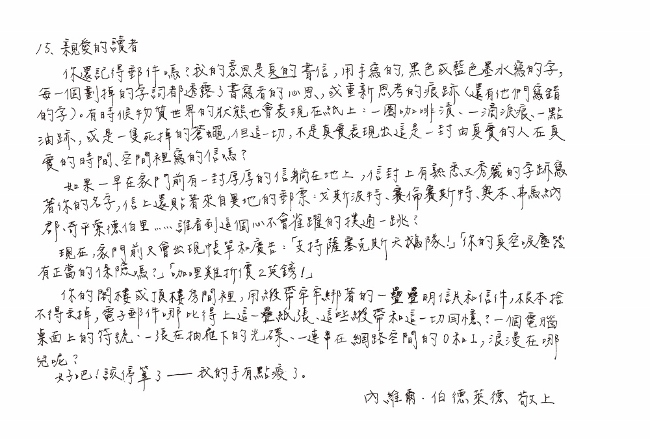 15、親愛的讀者
你還記得郵件嗎?我的意思是真的書信,用手寫的,黑色或藍色墨水寫的字,
每一個劃掉的字詞都透露了書寫者的心思、或重新思考的痕跡(還有他們寫錯
的字)。有時候物質世界的狀態也會表現在紙上:一圈咖啡漬、一滴淚痕、一點
油跡,或是一隻死掉的蒼蠅,但這一切,不是真實表現出這是一封由真實的人在真
實的時間、空間裡寫的信嗎?
如果一早在家門前有一封厚厚的信躺在地上,信封上有熟悉又秀麗的字跡寫
著你的名字,信上還貼著來自異地的郵票:戈斯波特、賽倫賽斯特、奧本、弗馬納
郡、奇平索德伯里……誰看到這個心不會雀躍的撲通一跳?
現在,家門前只會出現帳單和廣告:「支持薩塞克斯天鵝隊!」「你的真空吸塵器
有正當的保險嗎?」「咖哩雞折價2英鎊!」
你的閣樓或頂樓房間裡,用緞帶牢牢綁著的一疊疊明信片和信件,根本捨
不得丟掉,電子郵件哪比得上這一疊紙張、這些緞帶和這一切回憶?一個電腦
桌面上的符號、一張在抽屜下的光碟、一連串在網路空間的0和1,浪漫在哪
兒呢?
好吧!該停筆了——我的手有點痠了。
內維爾·伯德萊德 敬上